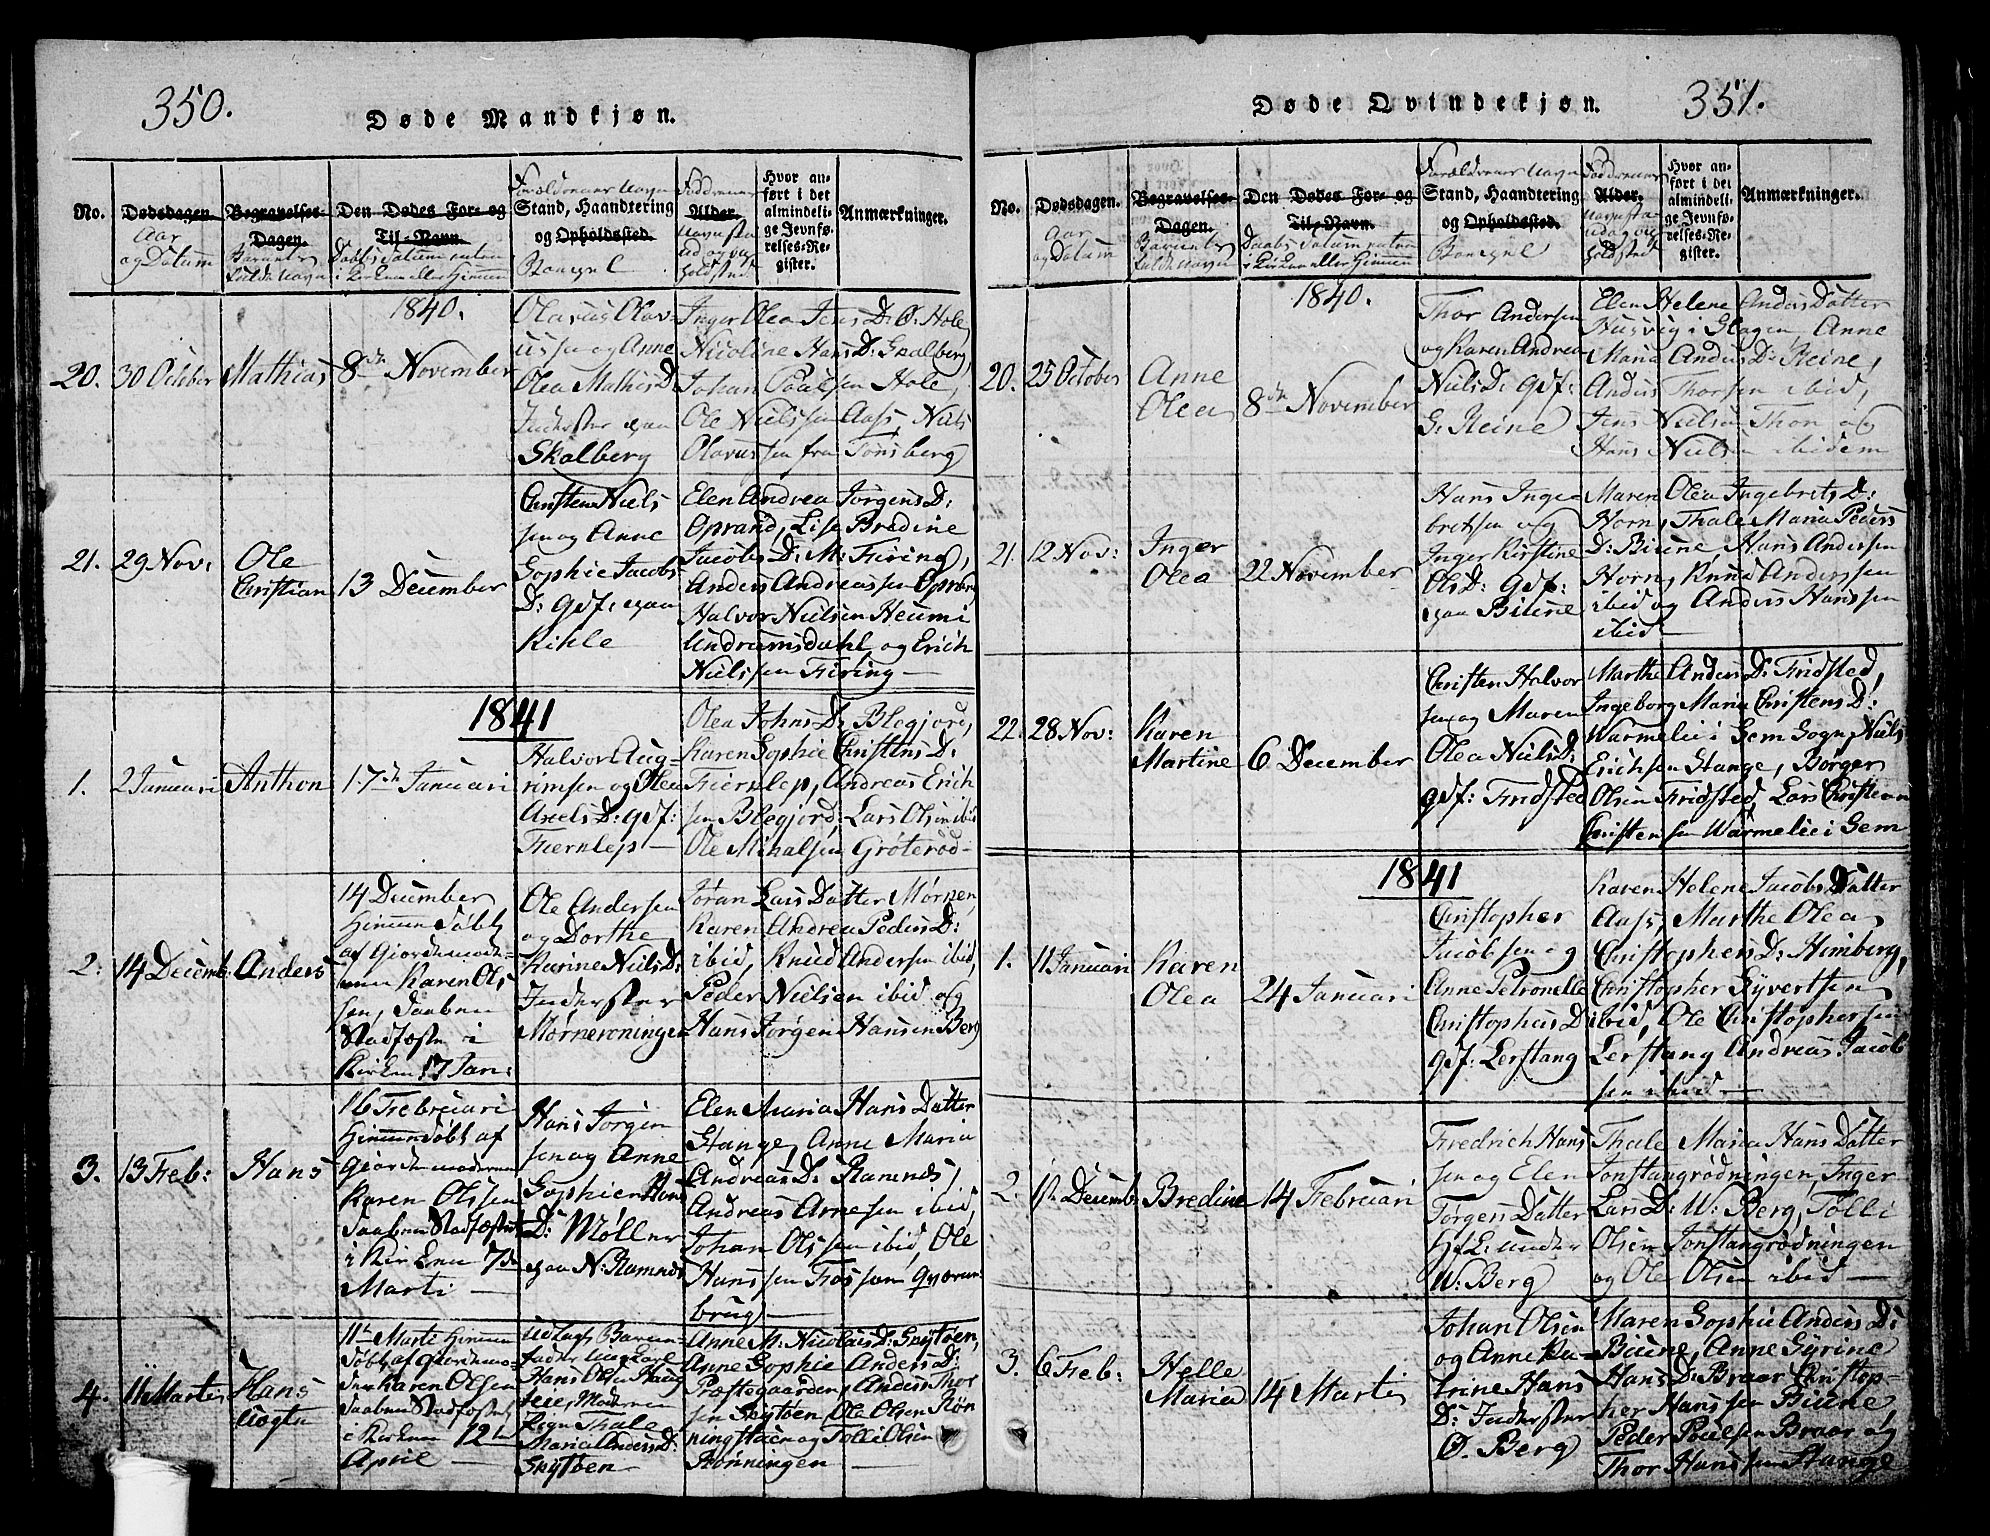 350.
Døde Mandkjøn.
No.
Dødsdagen.
Aar
og Datum
Begravelses-
Dagen.
Barnets
fulde Navn
Den Dødes For- og
Til-Navn.
Daabs Datum enten
i Kirken eller Hiemme
Forældrenes Navn
Stand, Haandtering
og Opholdssted.
Alder.
Hvor an-
ført i det
almindeli-
ge Jevnfø-
relses-Re-
gister.
Anmærkninger.
1840.
20.
30 October
Mathias
8de November
Olavus Olav-
ussen og Anne
Olea Mathis D:
Inderster paa
Skalberg
Inger Olea Jens D: Ø: Hole,
Nicoline Hans D: Skalberg,
Johan Paulsen Hole,
Ole Nielssen Aass, Niels
Olavussen fra Tønsberg
21.
29 Nov:
Ole
Christian
13 December
Christen Niels
sen og Anne
Sophie Jacobs
D: gdf: paa
Kihle
Elen Andrea Jørgens D:
Oprand, Lise Bredine
Jacobs D: M: Firing,
Anders Andreassen Oprand,
Halvor Nielsen Heum i
Undrumsdahl og Erich
Nielssen Firing
1841
1.
2 Januari
Anthon
17de Januari
Halvor Aug-
rimsen og Olea
Axels D: gdf:
Fiernlep
Olea Johns D: Blegjord,
Karen Sophie Christens D:
Fiernlep, Andreas Erich
sen Blegjord: Lars Olsen ibid
Ole Mihalsen Grøterød
2.
14 Decemb:
Anders
14 December
Hiemmedøbt
af Giordemode-
ren Karen Ols
sen, Daaben
Stadfæstet i
Kirken 17 Jan:
Ole Andersen
og Dorthe
Karine Niels D:
Inderster
Mørneroningen
Jøran Lars Datter Mørken,
Karen Andrea Peders D:
ibid, Knud Andersen ibid,
Peder Nielsen ibid og
Hans Jørgen Hansen Berg
3.
13 Feb:
Hans
16 Februari
Hiemmedøbt af
Giordemoderen
Karen Olssen
Daaben Stadfæstet
i Kirken 7de
Marti
Hans Jørgen
sen og Anne
Sophie Hans
D: Møller
paa N: Ramnes
Elen Maria Hans Datter
Stange, Anne Maria
Andreas D: Ramnes,
Andreas Arnesen ibid,
Johan Olssen ibid, Ole
Hanssen Fossan
brug
4.
11 Martis
Hans
August
11te Marti Hiemme
døbt af Giordemo-
deren Karen Olsen
Daaben Stadfæstet
i Kirken 12te
April
Udlagt Barne-
fader Ungkarl
Hans Olsen
Moderen
Pigen Thale
Maria Anders D:
Skytøen
Anne M: Nicolais D: Skytøen,
Anne Sophie Anders D:
Præstegaarden, Anders Thor
sen Skytøen, Ole Olsen Røn
ningstuen og Tolli Olsen
Rønningen
351.
Døde Qvindekjøn.
No.
Dødsdagen.
Aar
og Datum
Begravelses-
Dagen.
Barnets
fulde Navn
Den Dødes For- og
Til-Navn.
Daabs Datum enten
i Kirken eller Hiemme
Forældrenes Navn
Stand, Haandtering
og Opholdssted.
Alder.
Hvor an-
ført i det
almindeli-
ge Jevnfø-
relses-Re-
gister.
Anmærkninger.
1840.
20.
25 October
Anne
Olea
8de November
Thor Andersen
og Karen Andrea
Niels D: gdf:
G: Reine
Elen Helene Anders Datter
Husvig i Slagen, Anne
Maria Anders D: Reine,
Anders Thorsen ibid,
Jens Nielsen Thon og
Hans Nielsen ibidem
21.
12 Nov:
Inger
Olea
22 November
Hans Inge
bretsen og
Inger Kirstine
Ols D: gdf:
paa Biune
Maren Olea Ingebrets D:
Horn, Thale Maria Peders
D: Biune, Hans Andersen
Horn, Knud Anderssen
ibid og Anders Hanssen
ibid
22.
28 Nov:
Karen
Martine
6 December
Christen Halvor
sen og Maren
Olea Niels D:
gdf: Fridsted
Marthe Anders D: Fridsted,
Ingeborg Maria Christens D:
Warmelie i Sem Sogn, Niels
Erichsen Stange, Borger
Olsen Fridsted, Lars Christian
Christensen Warmelie i Sem
1841
1.
11 Januari
Karen
Olea
24 Januari
Christopher
Jacobsen og
Anne Petronelle
Christophers D:
gdf: Lerstang
Karen Helene Jacobs Datter
Aass, Marthe Olea
Christophers D: Himberg,
Christopher Syvertsen
ibid, Ole Christophersen
Lerstang Andreas Jacob
sen ibid
2.
1ste Decemb:
Bredine
14 Februari
Fredrich Hans
sen og Elen
Jørgens Datter
W: Berg
Thale Maria Hans Datter
Jonstangrødningen, Inger
Lars D: W: Berg, Tolli
Olsen Jonstangrødningen
og Ole Olsen ibid
3.
6 Feb:
Helle
Maria
14 Martis
Johan Olsen
og Anne Ka-
trine Hans
D: Inderster
Ø. Berg
Maren Sophie Anders D:
Biune, Anne Syrine
Hans D: Braar Christop-
her Hanssen Biune
Peder Poulsen Braar og
Thor Hanssen Stange